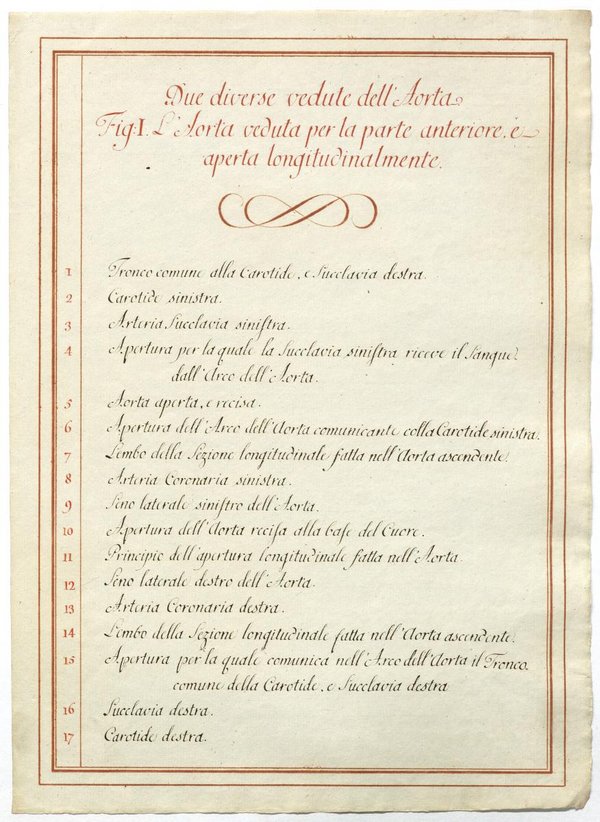 Due diverse vedute dell'Aorta
Fig: I. L'Aorta veduta per la parte anteriore, e
aperta longitudinalmente.
1 Tronco comune alla Carotide, e Succlavia destra.
2 Carotide sinistra.
3 Arteria Succlavia siniſtra.
4 Apertura per la quale la Succlavia siniſtra riceve il Sangue
dall'Arco dell'Aorta.
5 Aorta aperta, e recisa.
6 Apertura dell'Arco dell'Aorta comunicante colla Carotide sinistra.
7 Lembo della Sezione longitudinale fatta nell'Aorta ascendente.
8 Arteria Coronaria sinistra.
9 Seno laterale siniſtro dell'Aorta.
10 Apertura dell'Aorta reciſa alla base del Cuore.
11 Principio dell'apertura longitudinale fatta nell'Aorta.
12 Seno laterale destro dell'Aorta.
13 Arteria Coronaria destra.
14 Lembo della Sezione longitudinale fatta nell'Aorta ascendente.
15 Apertura per la quale comunica nell'Arco dell'Aorta il Tronco
comune della Carotide, e Succlavia destra
16 Succlavia destra.
17 Carotide destra.